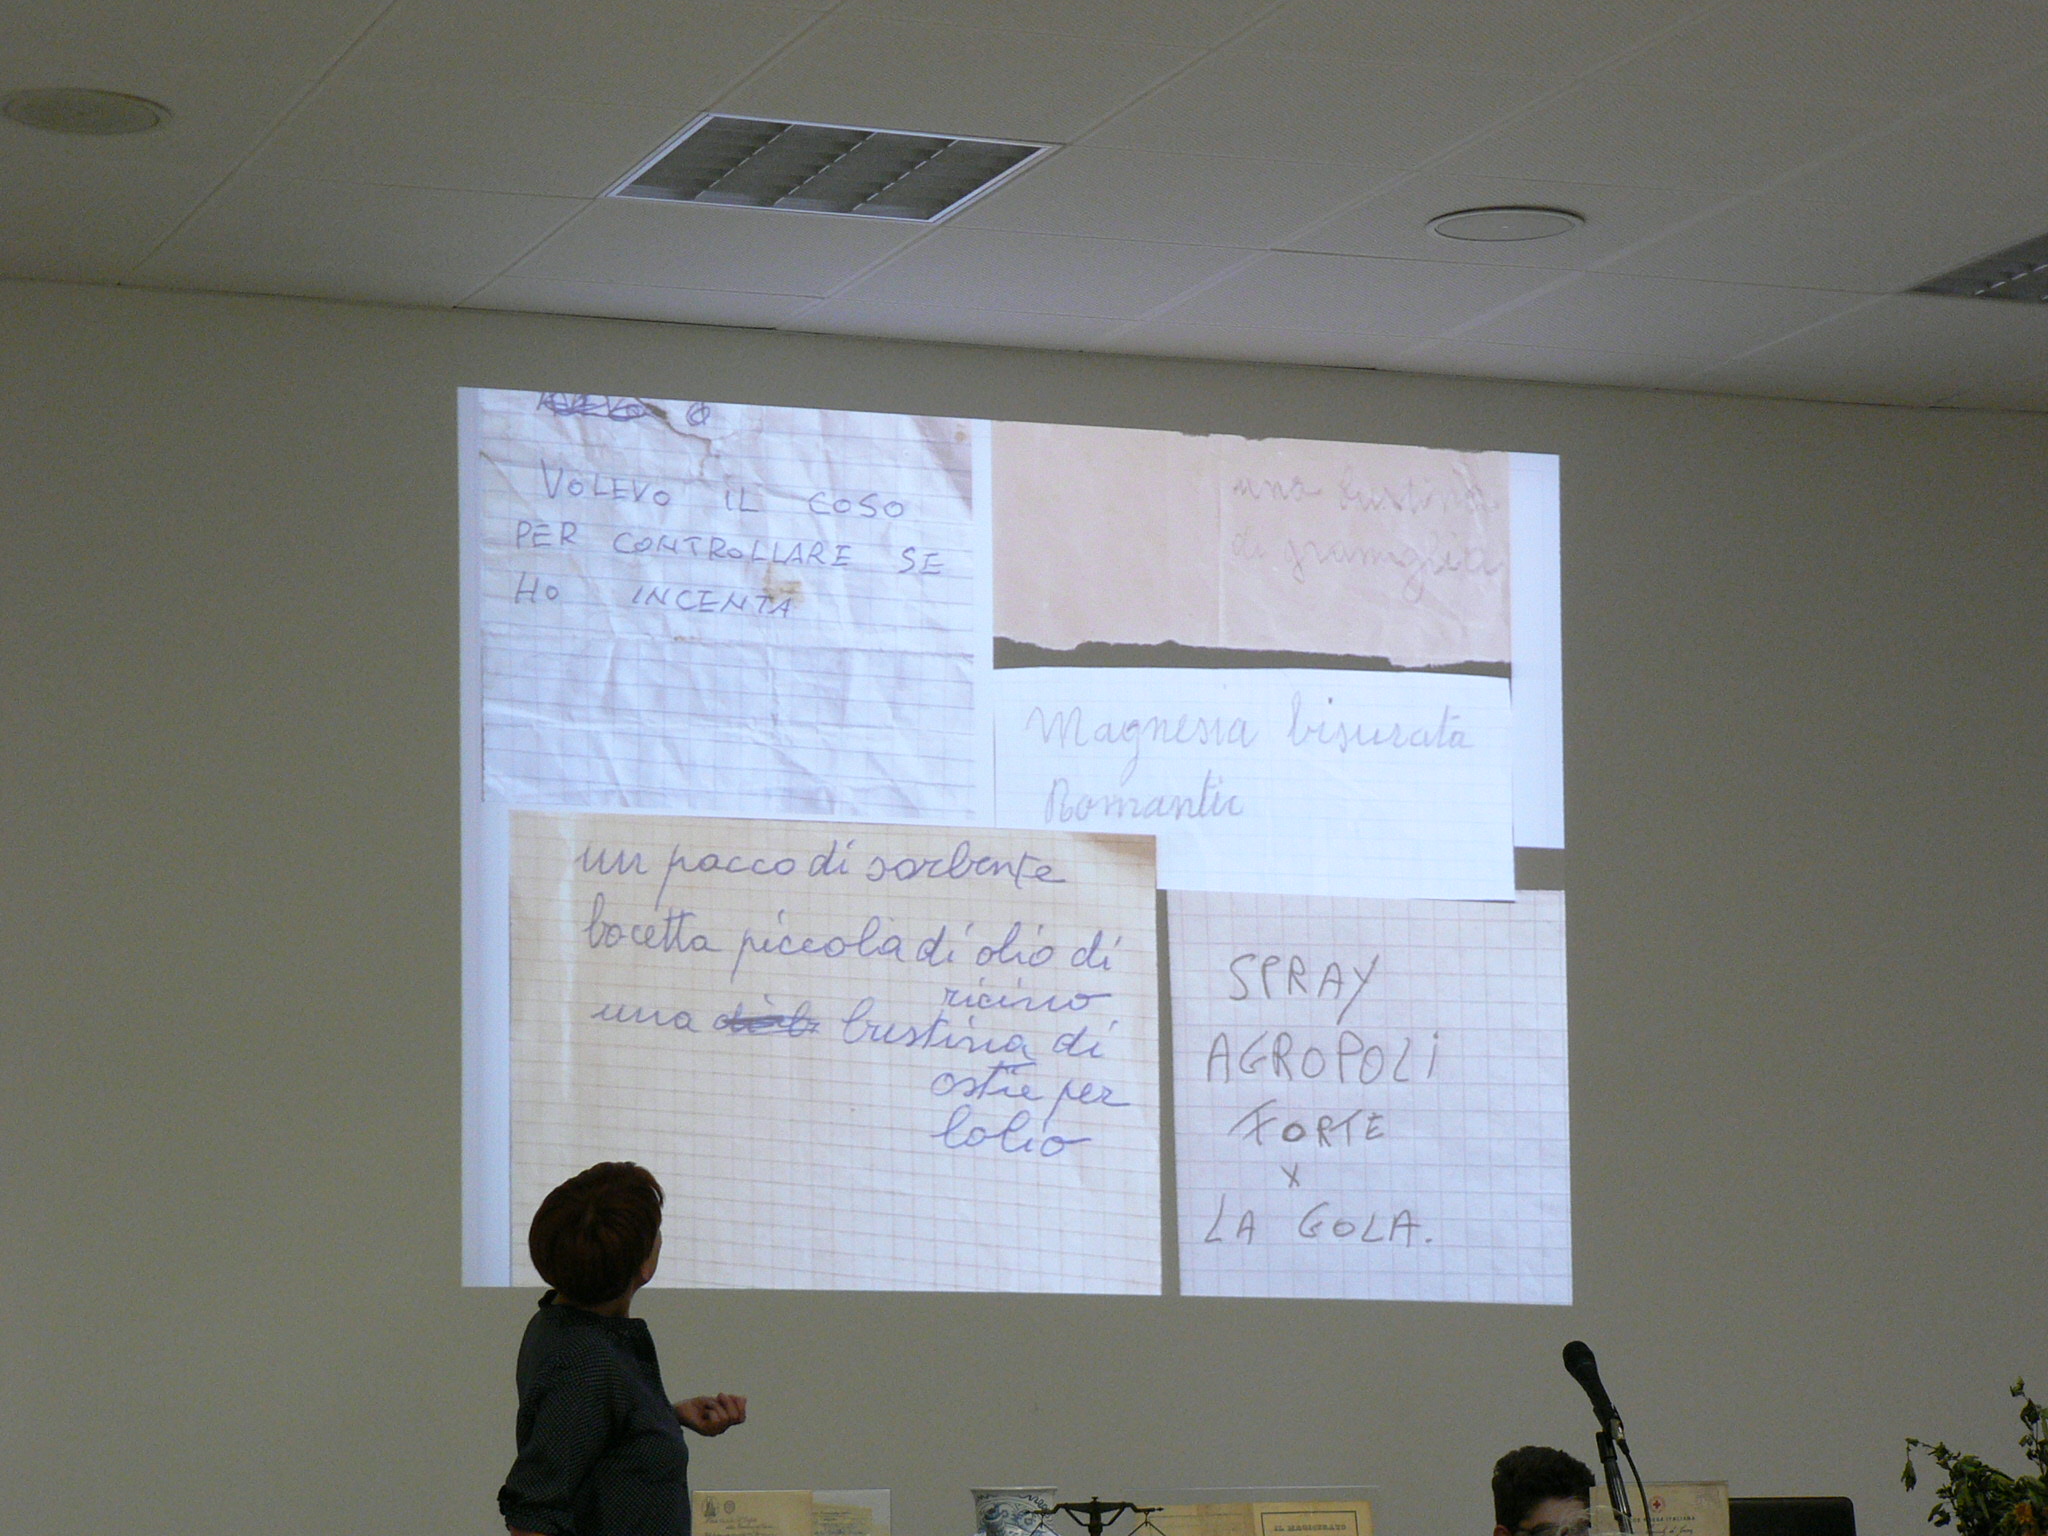 VOLEVO IL COSO
PER CONTROLLARE SE
HO INCENTA
una bustina
di gramiglia
Magnesia bisurata
Romantic
un pacco di sorbente
bocetta piccola di olio di
ricino
una bustina di
ostie per
lolio
SPRAY
AGROPOLI
FORTE
X
LA GOLA.
IL MAGISTRATO